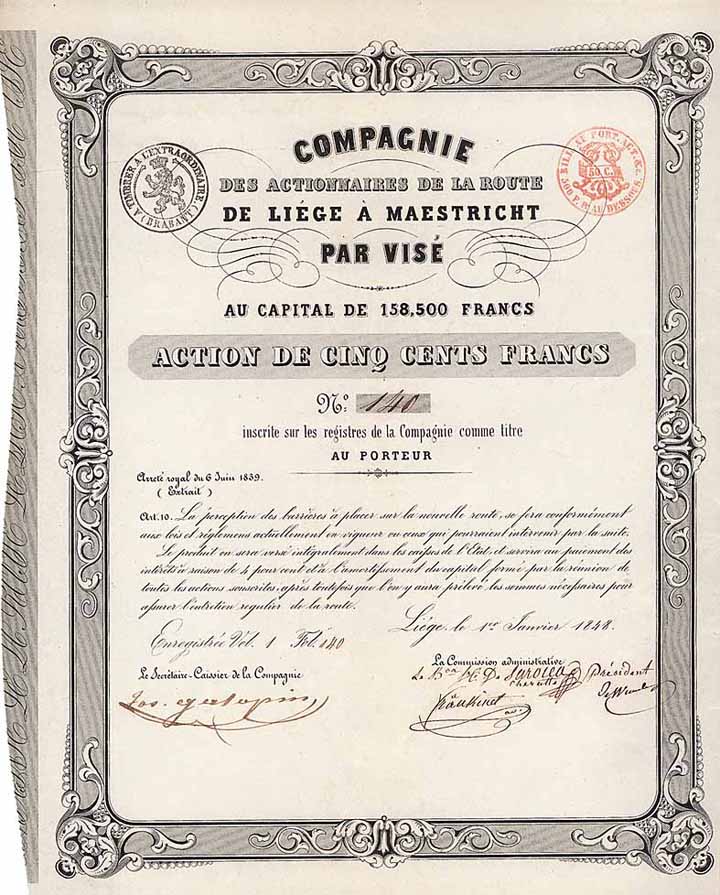 COMPAGNIE
DES ACTIONNAIRES DE LA ROUTE
DE LIÉGE À MAESTRICHT
PAR VISÉ
TIMBRER A L'EXTRAORDINAIRE
(BRABANT)
50 C.
500 F. & AU DESSOUS.
AU CAPITAL DE 158,500 FRANCS
ACTION DE CINQ CENTS FRANCS
No. 140
inscrite sur les registres de la Compagnie comme titre
AU PORTEUR
Arreté royal du 6 Juin 1839.
(Extrait)
Art. 10. La perception des barrières à placer sur la nouvelle route, se fera conformément
aux lois et réglemens actuellement en vigueur ou ceux qui pourraient intervenir par la suite.
Le produit en sera versé intégralement dans les caisses de l'Etat, et servira au paiement des
intérêts à raison de 4 pour cent et à l'amortissement du capital formé par la réunion de
toutes les actions souscrites, après toutefois que l'on y aura prélevé les sommes nécessaires pour
assurer l'entretien regulier de la route.
Liége, le 1er Janvier 1848.
Enregistrée Vol. 1 Fol. 140
Le Secrétaire-Caissier de la Compagnie
La Commission administrative
Président